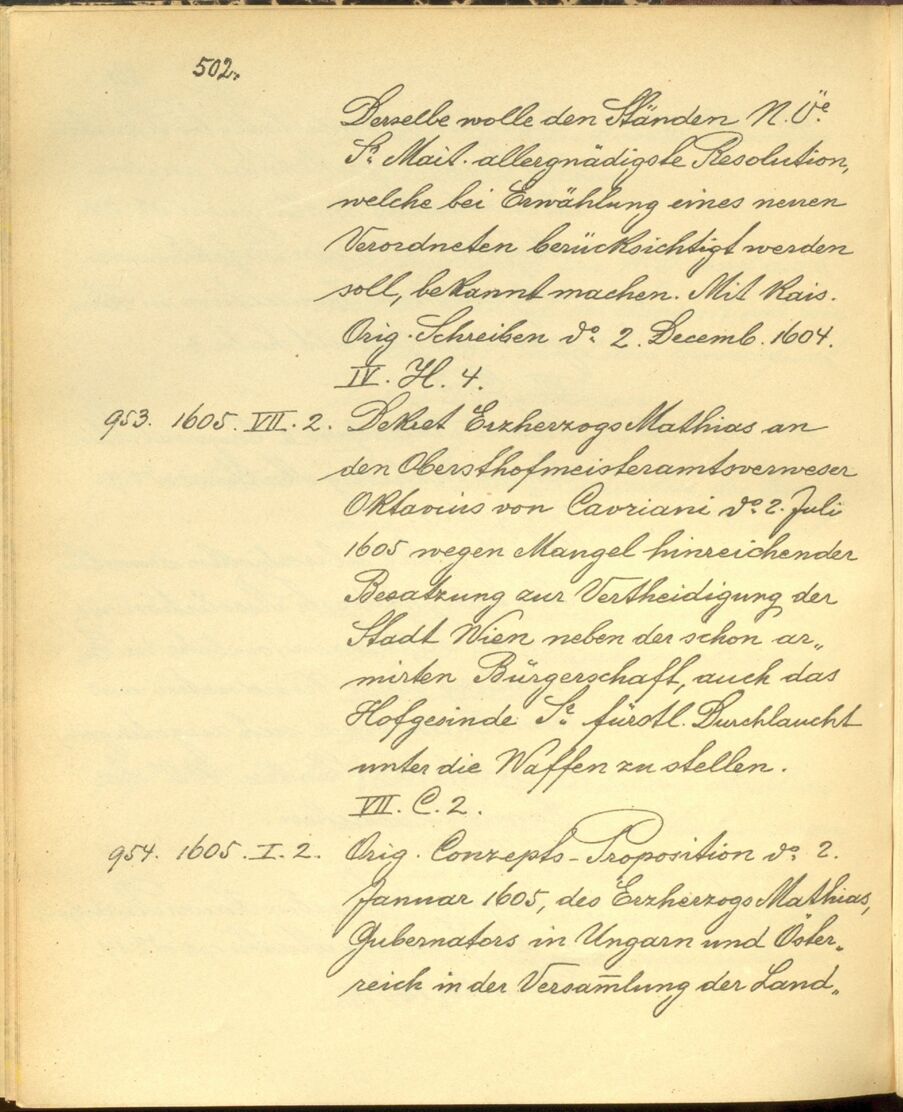 502.
Derselbe wolle den Ständen N. Öe.
Sr. Mait. allergnädigste Resolution,
welche bei Erwählung eines neuen
Verordneten berücksichtigt werden
soll, bekannt machen. Mit Kais.
Orig. Schreiben do. 2. Decemb. 1604.
IV. H. 4.
953. 1605. VII. 2. Dekret Erzherzogs Mathias an
den Obersthofmeisteramtsverweser
Oktavius von Cavriani do. 2. Juli
1605 wegen Mangel hinreichender
Besatzung zur Vertheidigung der
Stadt Wien neben der schon ar„
mirten Bürgerschaft, auch das
Hofgesinde Sr. fürstl. Durchlaucht
unter die Waffen zu stellen.
VII. C. 2.
954. 1605. I. 2. Orig. Conzepts-Proposition do. 2.
Januar 1605, des Erzherzogs Mathias,
Gubernators in Ungarn und Öster„
reich in der Versam̅lung der Land„